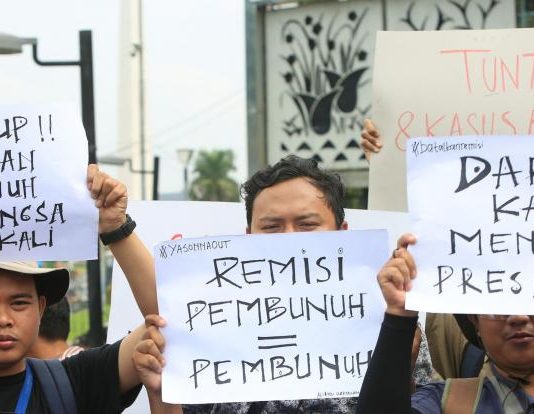 UP !!
AN
UH
NGSA
KALI
#YASONNAOUT
REMISI
PEMBUNUH
=
PEMBUNUH
TUNT
& KASUS
#batalkanremisi
DAR
KA
MEN
PRES